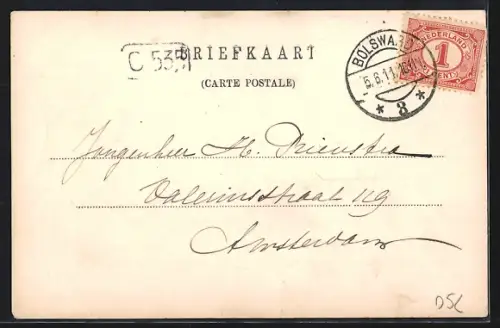 C 535
BRIEFKAART
(CARTE POSTALE)
BOLSWARD
5.6.11
* 3 *
NEDERLAND
1
CENT
Jongenheer H. Dienstra
Valeriusstraat 119
Amsterdam
DSL